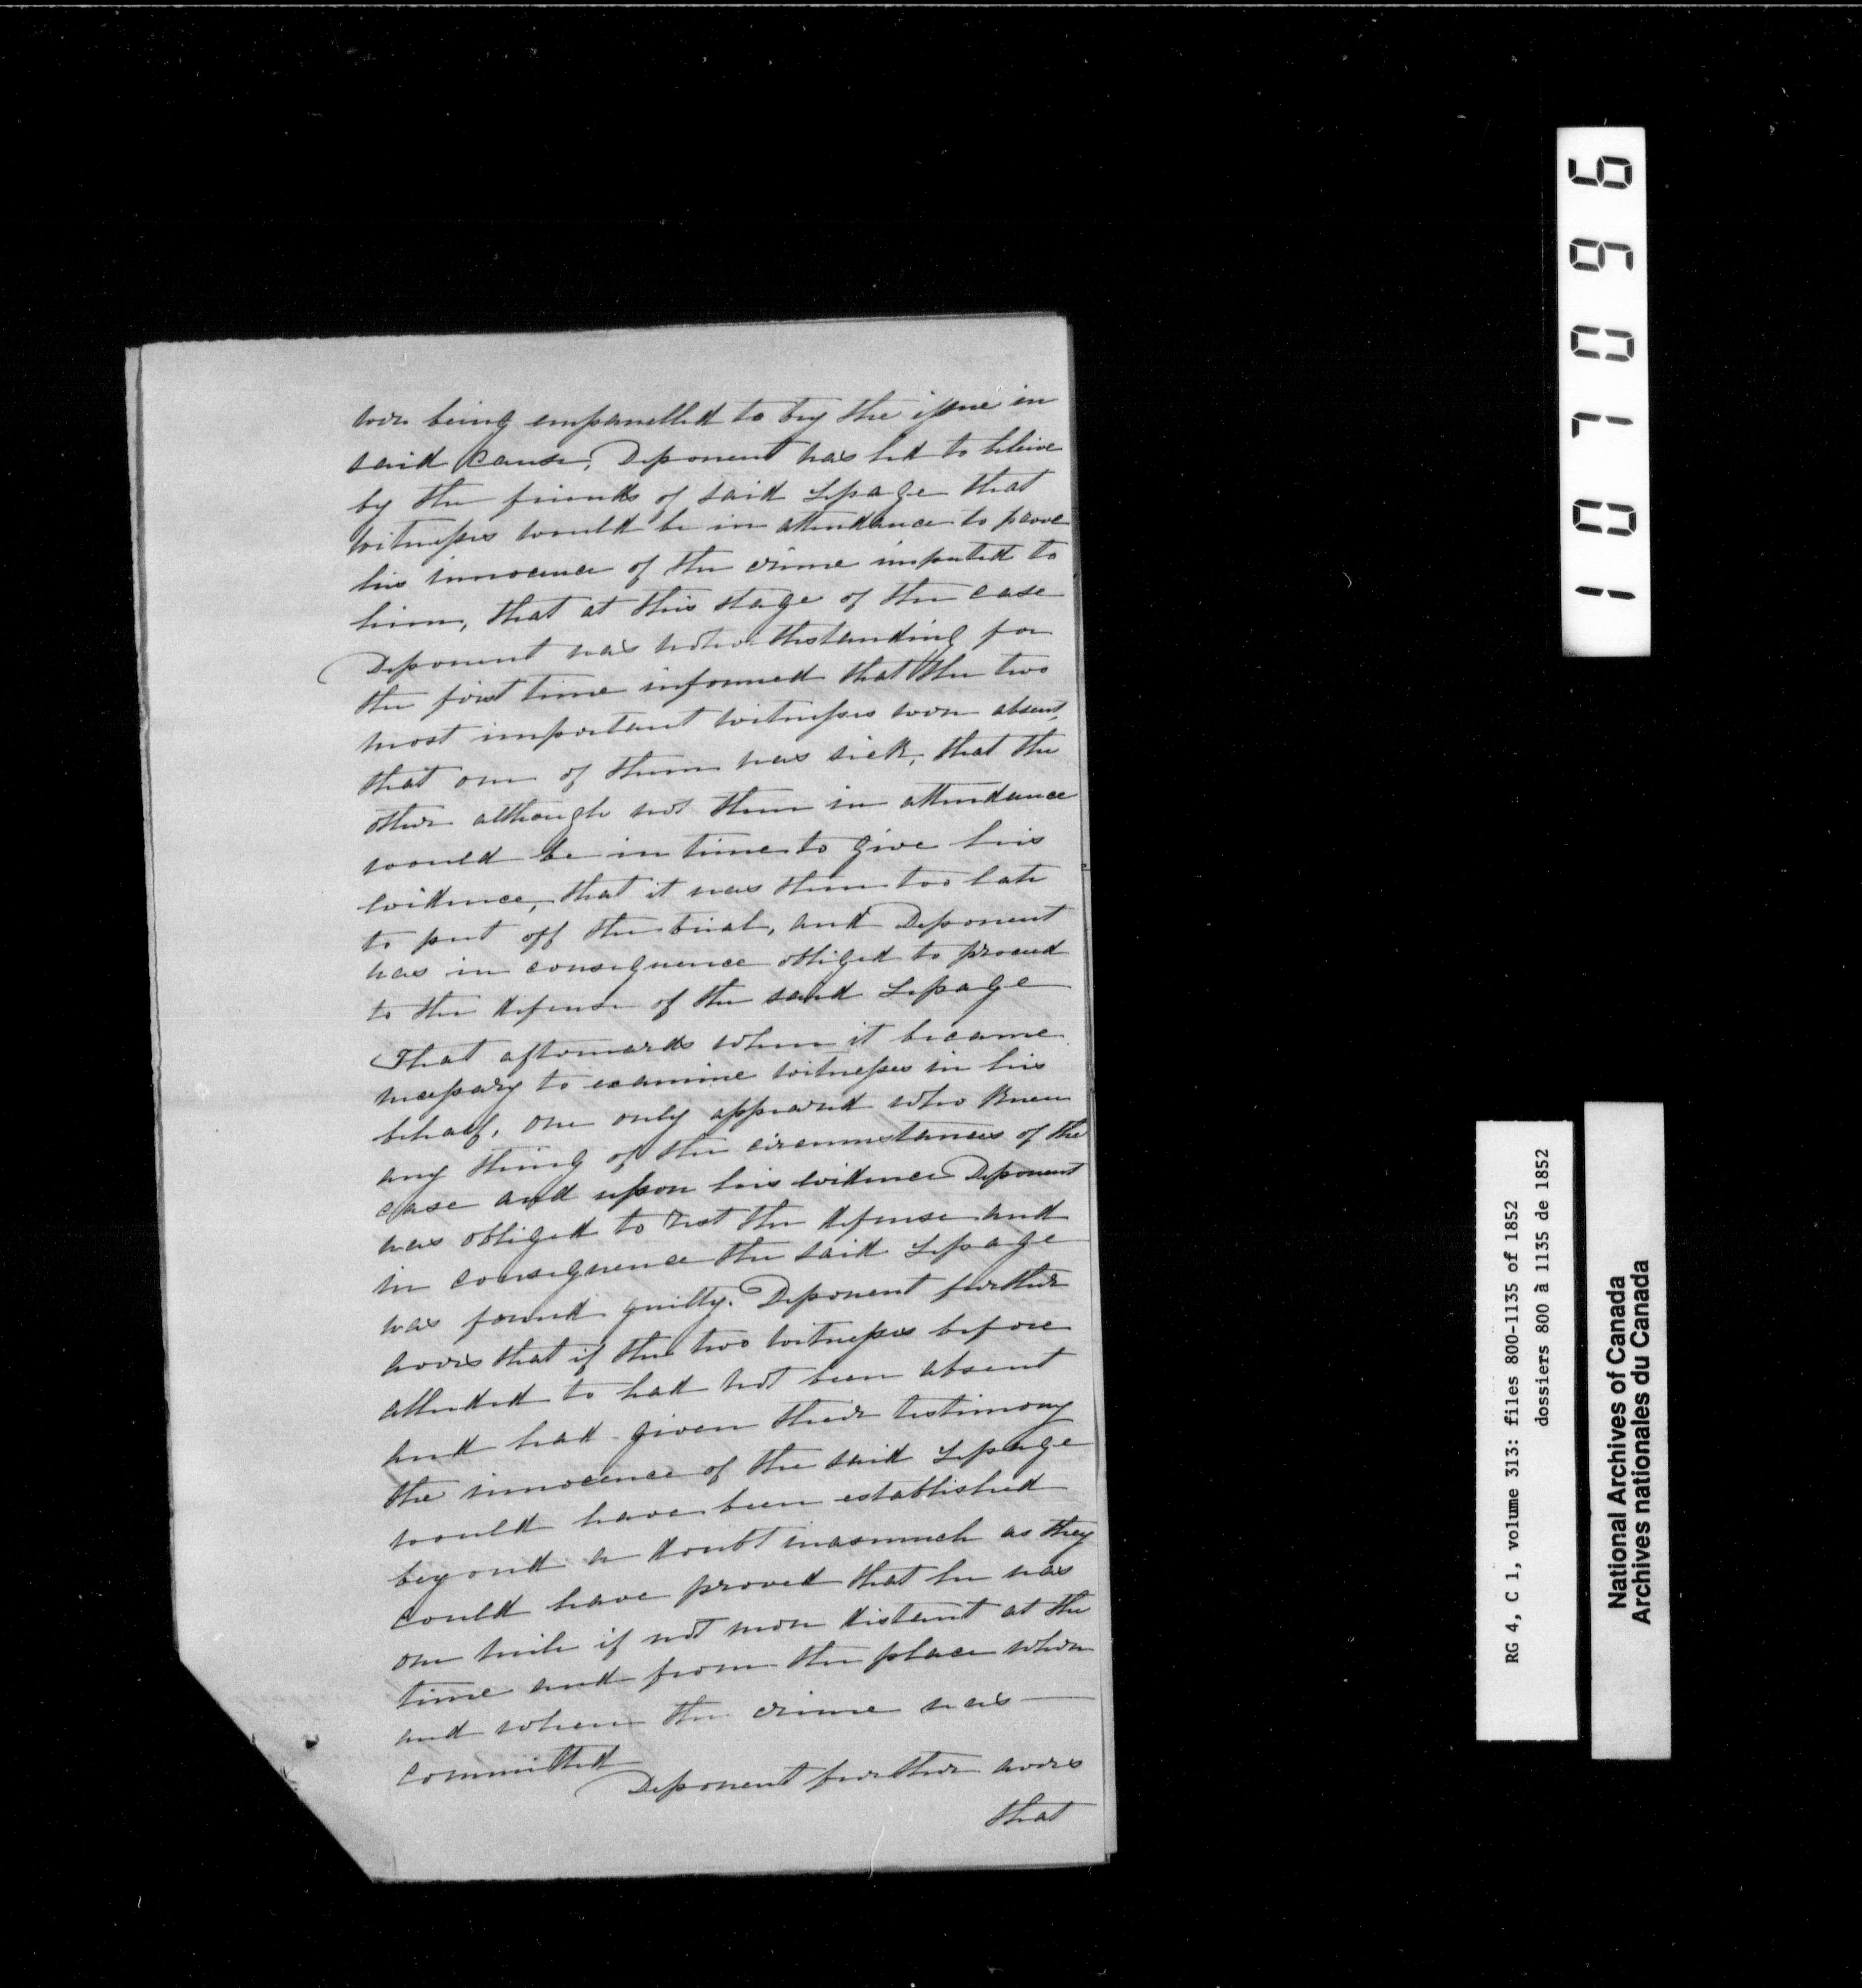 were being empanelled to try the issue in
said cause, Deponent was led to beleive
by the friends of said Lepage that
witnesses would be in attendance to prove
his innocence of the crime imputed to
him, that at this stage of the case
Deponent was notwithstanding for
the first time informed that the two
most important witnesses were absent,
that one of them was sick, that the
other although not then in attendance
would be in time to give his
evidence, that it was then too late
to put off the trial, and Deponent
was in consequence obliged to proceed
to the defense of the said Lepage
That afterwards when it became
necessary to examine witnesses in his
behalf, one only appeared who knew
any thing of the circumstances of the
case and upon his evidence Deponent
was obliged to rest the defense and
in consequence the said Lepage
was found guilty. Deponent further
avers that if the two witnesses before
alluded to had not been absent
and had given their testimony
the innocence of the said Lepage
would have been established
beyond a doubt inasmuch as they
could have proved that he was
one mile if not more distant at the
time and from the place where
and when the crime was
committed
Deponent further avers
that
107096
RG 4, C 1, volume 313: files 800-1135 of 1852
dossiers 800 à 1135 de 1852
National Archives of Canada
Archives nationales du Canada